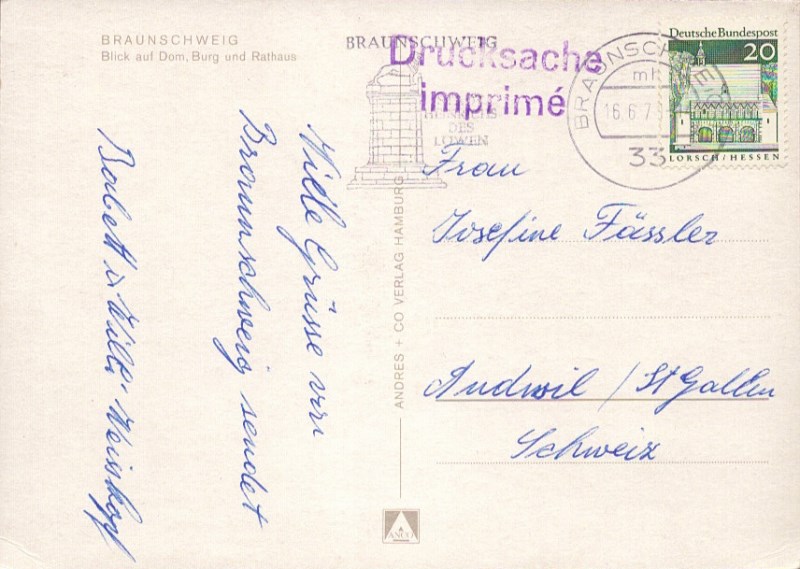 BRAUNSCHWEIG
Blick auf Dom, Burg und Rathaus
BRAUNSCHWEIG
HEINRICHS
DES
LÖWEN
Drucksache
imprimé
BRAUNSCHWEIG
mk
16.6.7
33
Deutsche Bundespost
20
LORSCH/HESSEN
Ville Grüsse von
Braunschweig sendet
Babett u. Willi Weisskopf
ANDRES + CO VERLAG HAMBURG
ANCO
Frau
Josefine Fässler
Andwil / St Gallen
Schweiz